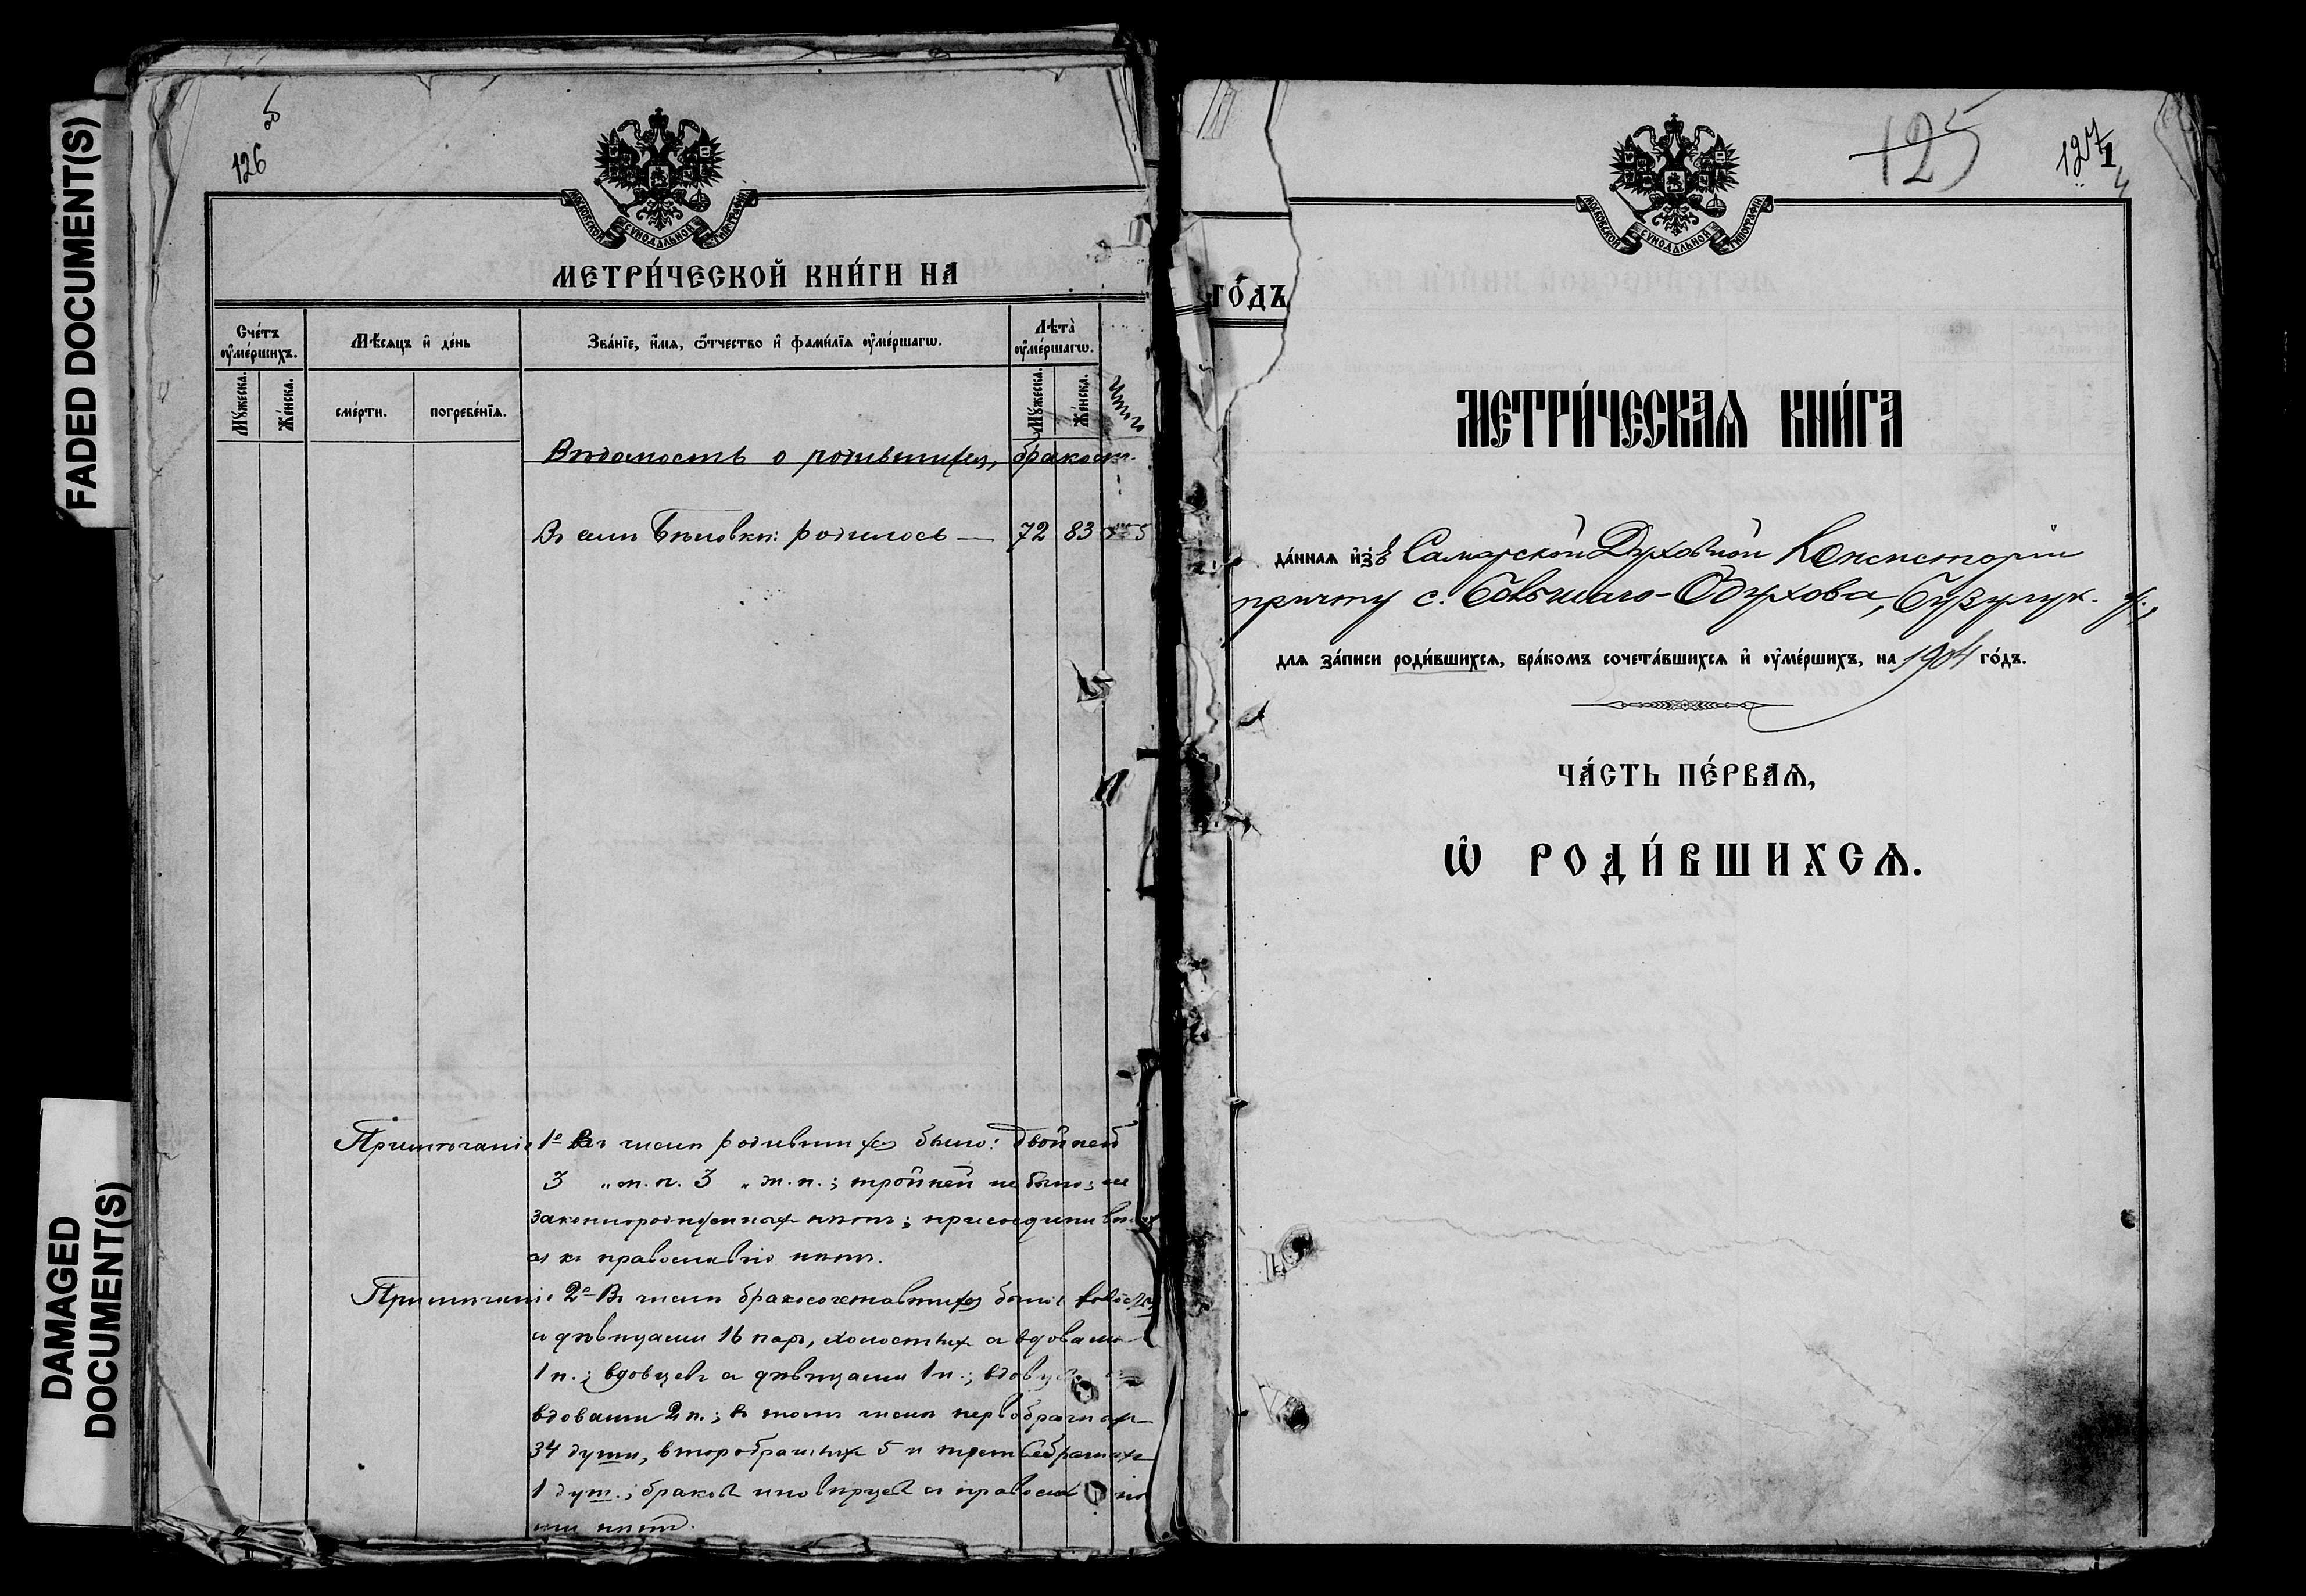 FADED DOCUMENT(S)
DAMAGED
DOCUMENT(S)
126 об
МОСКОВСКОЙ СѴНОДАЛЬНОЙ ТИПОГРАФІИ
МЕТРИ́ЧЕСКОЙ КНИ́ГИ НА
Сче́тъ ᲂу҆ме́ршихъ.
Мѣ́сяцъ и҆ де́нь
Зва́нїе, и҆́мѧ, ѻ҆́тчество и҆ фами́лїѧ ᲂу҆ме́ршагѡ.
Лѣта̀ ᲂу҆ме́ршагѡ.
Мꙋ́жеска.
Же́нска.
сме́рти.
погребе́нїѧ.
Мꙋ́жеска.
Же́нска.
Итого
Вѣдомость о родившихся, бракосоч.
Въ селѣ родилось — 72 83
Примѣчаніе 1е Въ числѣ родившихся было: двойней
3 м. п. 3 ж. п.; тройней не было; не
законнорожденныхъ нѣтъ; присоединив
къ православію нѣтъ.
Примѣчаніе 2е Въ числѣ бракосочетавшихся было:
съ дѣвицами 16 паръ, холостыхъ съ вдовами
1 п.; вдовцевъ съ дѣвицами 1 п.;
вдовами 2 п.; въ томъ числѣ первобрачныхъ
34 души, второбрачныхъ 5 и третьебрачныхъ
1 душ.; браковъ иновѣрцевъ съ
нѣтъ.
ГО́ДЪ
125
127
МОСКОВСКОЙ СѴНОДАЛЬНОЙ ТИПОГРАФІИ
МЕТРИ́ЧЕСКАѦ КНИ́ГА
да́ннаѧ и҆зъ Самарской Духовной Консисторіи
причту с. Бывшаго-Одухова, Бузулук. у.,
длѧ за́писи роди́вшихсѧ, бра́комъ сочета́вшихсѧ и҆ ᲂу҆ме́ршихъ, на 1904 го́дъ.
ЧА́СТЬ ПЕ́РВАѦ,
Ѽ РОДИ́ВШИХСѦ.